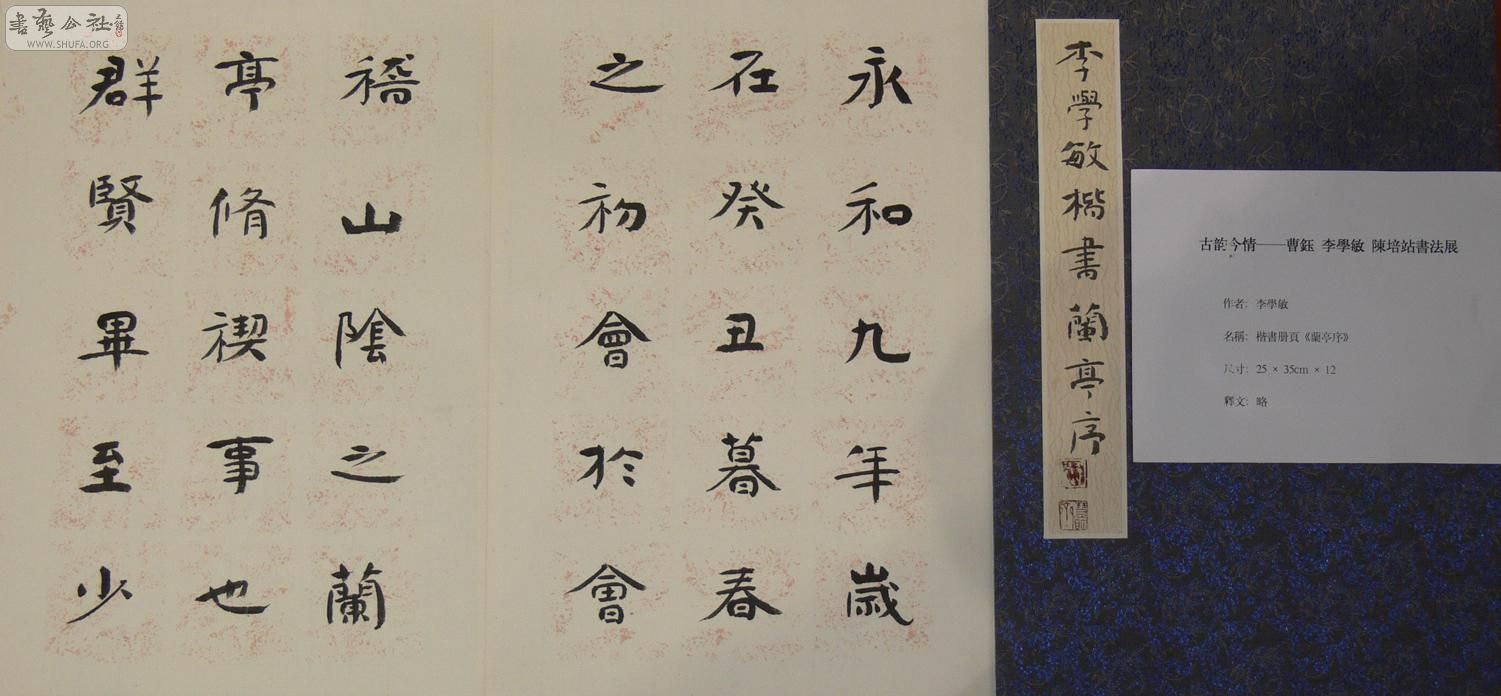 書藝公社
WWW.SHUFA.ORG
李學敏楷書蘭亭序
古韵今情——曹鈺 李學敏 陳培站書法展
作者: 李學敏
名稱: 楷書册頁《蘭亭序》
尺寸: 25 × 35cm × 12
釋文: 略
永和九年歲
在癸丑暮春
之初會於會
稽山陰之蘭
亭脩禊事也
群賢畢至少